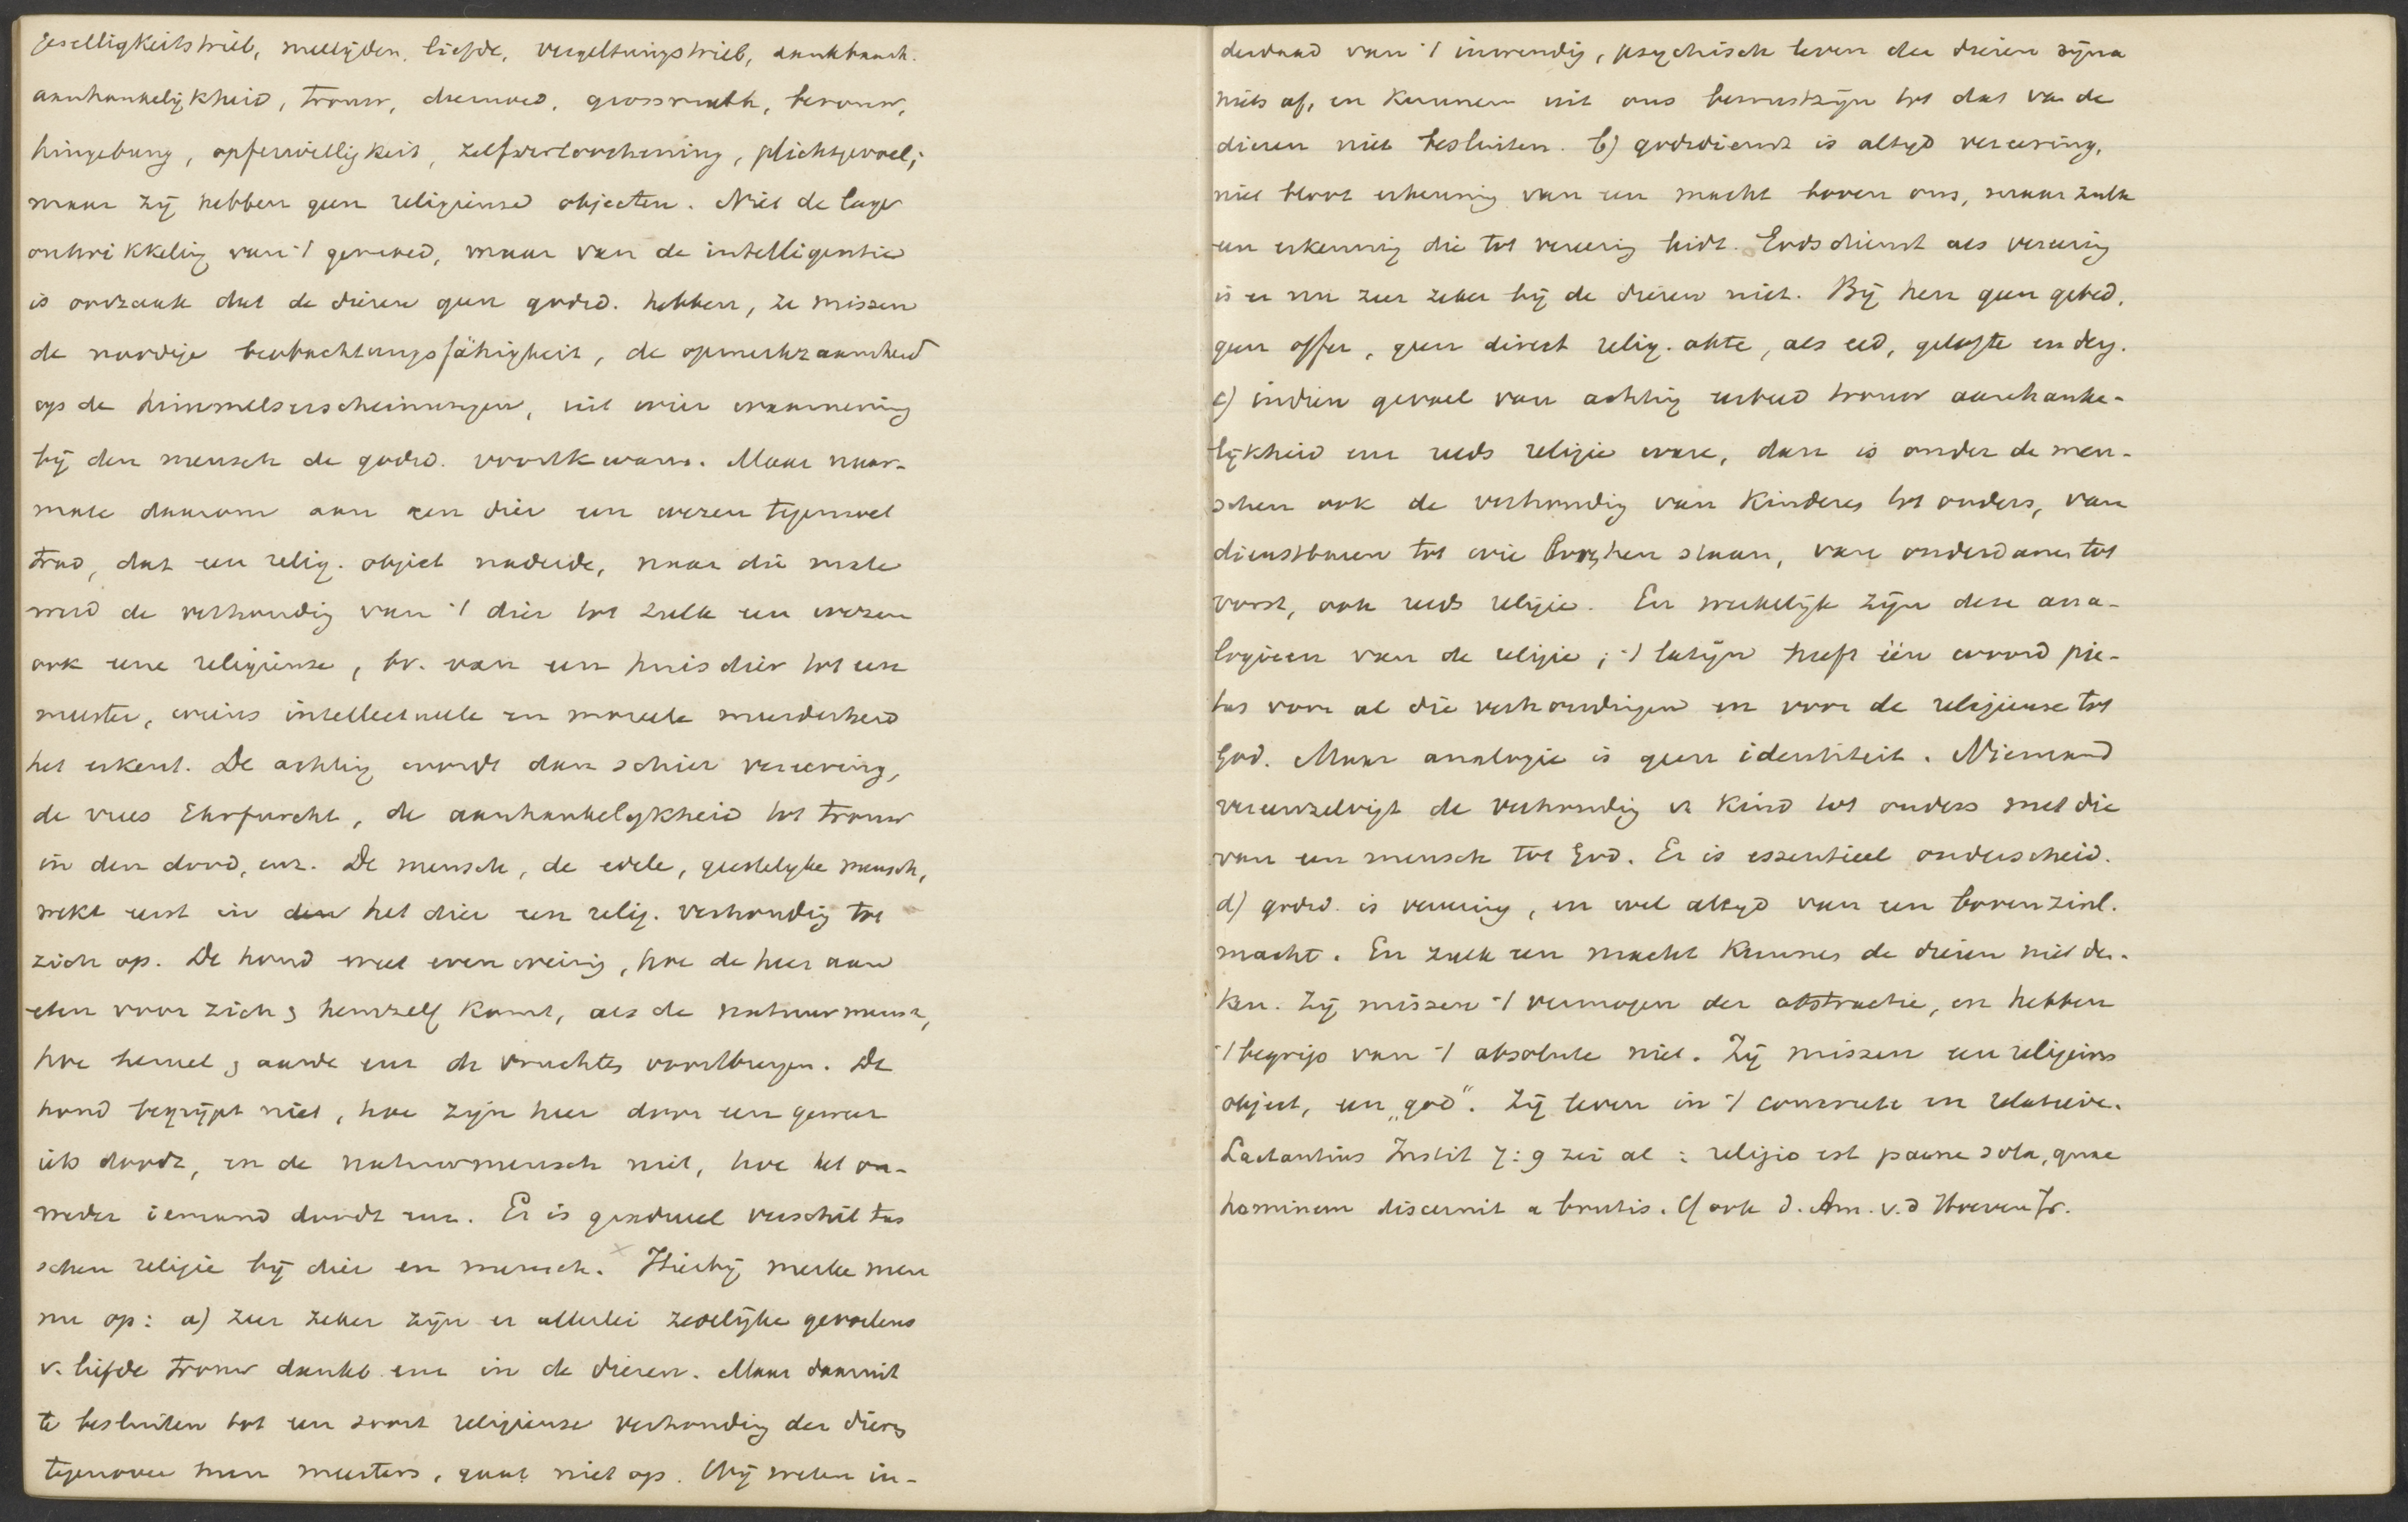 Geselligkeitstrieb, medelijden, liefde, vergeltungstrieb, dankbaarh.
aanhankelijkheid, trouw, deemoed, grossmuth, berouw,
hingebung, opferwilligkeit, zelfverloochening, plichtgevoel;
maar zij hebben geen religieuse objecten. Niet de lage
ontwikkeling van 't gemoed, maar van de intelligentie
is oorzaak dat de dieren geen godsd. hebben, ze missen
de noodige beobachtungsfähigkeit, de opmerkzaamheid
op de himmelserscheinungen, uit wier waarneming
bij den mensch de godsd. voortkwam. Maar naar-
mate daarom aan een dier een wezen tegemoet
trad, dat een relig. object naderde, naar die mate
werd de verhoudig van 't dier tot zulk een wezen
ook eene religieuse, bv. van een huisdier tot een
meester, wiens intellectueele en moreele meerderheid
het erkent. De achtig wordt dan schier vereering,
de vrees Ehrfurcht, de aanhankelijkheid tot trouw
in den dood, enz. De mensch, de edele, geestelijke mensch,
wekt eerst in den het dier een relig. verhoudig tot
zich op. De hond weet even weinig, hoe de heer aan
eten voor zich & hemzelf komt, als de natuurmensch,
hoe hemel & aarde enz de vruchten voortbrengen. De
hond begrijpt niet, hoe zijn heer door een geweer
iets doodt, en de natuurmensch niet, hoe het on-
weder iemand doodt enz. Er is gradueel verschil tus
schen religie bij dier en mensch. x Hierbij merke men
nu op: a) zeer zeker zijn er allerlei zedelijke gevoelens
v. liefde trouw dankb. enz in de dieren. Maar daaruit
te besluiten tot een soort religieuse verhoudig der dieren
tegenover hun meesters, gaat niet op. Wij weten in-
derdaad van 't inwendig, psychisch leven der dieren bijna
niets af, en kunnen uit ons bewustzijn tot dat van de
dieren niet besluiten. b) godsdienst is altijd vereering,
niet bloot erkenning van een macht boven ons, maar zulk
een erkennig die tot vereerig leidt. Godsdienst als vereerig
is er nu zeer zeker bij de dieren niet. Bij hen geen gebed,
geen offer, geen direct relig. akte, als eed, gelofte en derg.
c) indien gevoel van achtig eerbied trouw aanhanke-
lijkheid enz reeds religie ware, dan is onder de men-
schen ook de verhoudig van kinderen tot ouders, van
dienstbaren tot wie boven hen staan, van onderdanen tot
vorst, ook reeds religie. En werkelijk zijn deze ana-
logieen van de religie; 't latijn heeft één woord pie-
tas voor al die verhoudingen en voor de religieuse tot
God. Maar analogie is geen identiteit. Niemand
vereenzelvigt de verhoudig v. kind tot ouders met die
van een mensch tot God. Er is essentieel onderscheid.
d) godsd. is vereerig, en wel altijd van een bovenzinl.
macht. En zulk een macht kunnen de dieren niet den-
ken. Zij missen 't vermogen der abstractie, en hebben
't begrip van 't absolute niet. Zij missen een religieus
object, een „god”. Zij leven in 't concrete en relatieve.
Lactantius Instit 7:9 zei al: religio est paene sola, quae
hominem discernit a brutis. Cf ook d. Am. v.d Hoeven Jr.